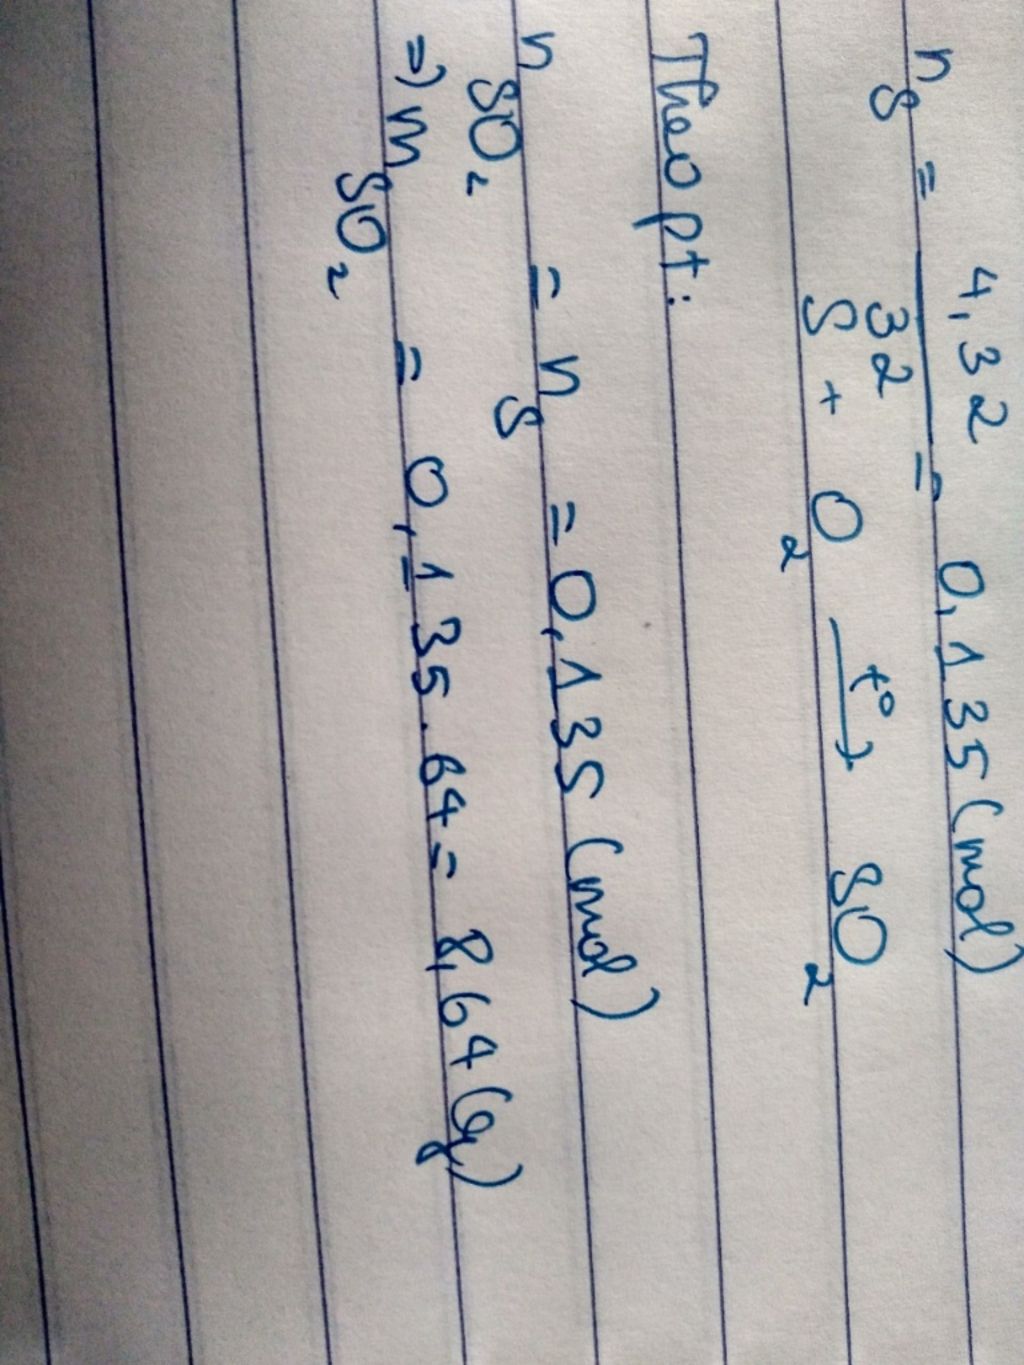 n_S = 4,32/32 = 0,135 (mol)
S + O₂ —t°→ SO₂
Theo pt:
n_SO₂ = n_S = 0,135 (mol)
=) m_SO₂ = 0,135.64 = 8,64 (g)